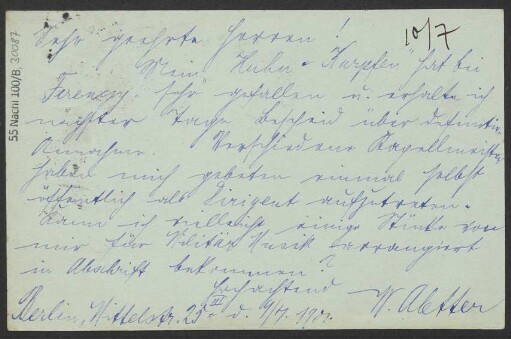 55 Nachl 100/B, 30087
10/7
Sehr geehrte Herren!
Mein "Huhn u. Karpfen" hat bei
Ferenczy sehr gefallen u. erhalte ich
nächster Tage Bescheid über definitive
Annahme. Verschiedene Kapellmeister
haben mich gebeten einmal selbst
öffentlich als Dirigent aufzutreten.
Kann ich vielleicht einige Stücke von
mir für Militär Musik arrangiert
in Abschrift bekommen?
Hochachtend
W. Aletter
Berlin, Mittelstr. 25 III d. 9/7. 190